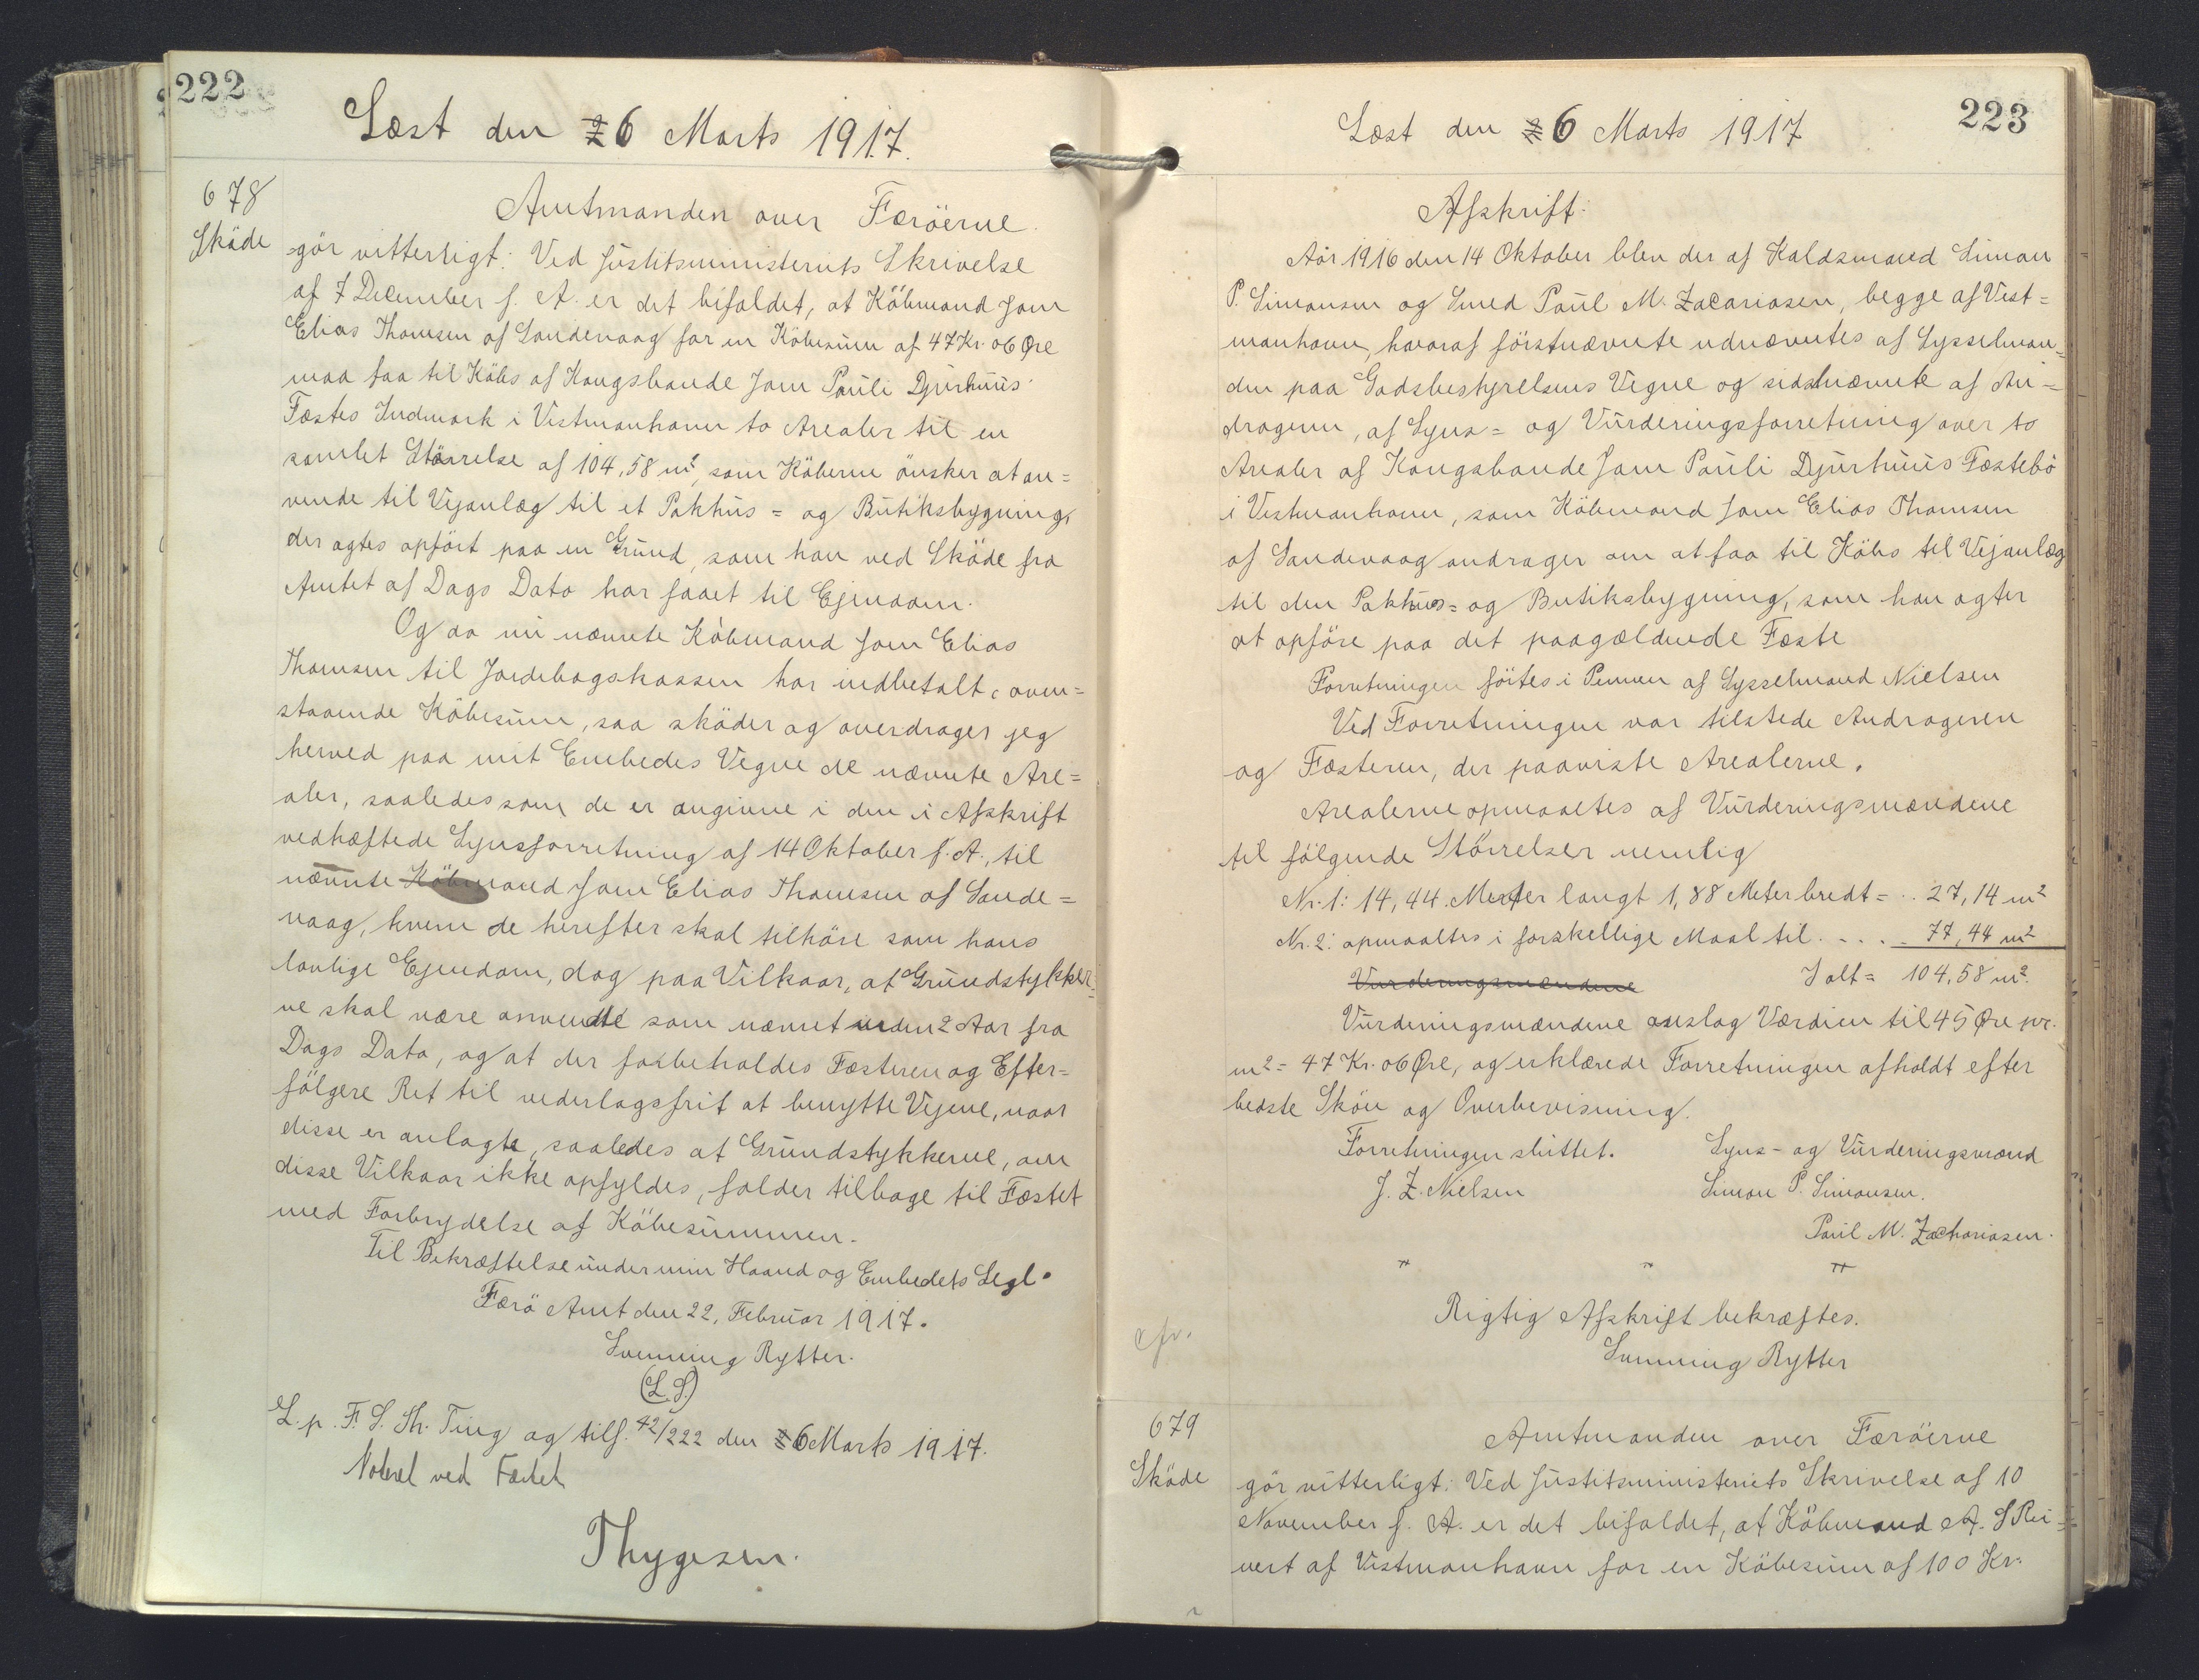 222
Læst den 26 Marts 1917.
678
Sköde
Amtmanden over Færöerne.
gör vitterligt: Ved Justitsministeriets Skrivelse
af 7 December f. A. er det bifaldet, at Köbmand Joen
Elias Thomsen af Sandevaag for en Köbesum af 47 Kr. 06 Øre
maa faa til Köbs af Kongsbonde Joen Pauli Djurhuus'
Fæstes Indmark i Vestmanhavn to Arealer til en
samlet Större​lse af 104,58 m², som Köberne önsker at an=
vende til Vejanlæg til et Pakhus= og Butiksbygning,
der agtes opfört paa en Grund, som han ved Sköde fra
Amtet af Dags Dato har faaet til Ejendom.
Og da nu nævnte Köbmand Joen Elias
Thomsen til Jordebogskassen har indbetalt oven=
staaende Köbesum, saa sköder og overdrager jeg
herved paa mit Embedes Vegne de nævnte Are=
aler, saaledes som de er angivne i den i Afskrift
vedhæftede Synsforretning af 14 Oktober f. A., til
nævnte Köbmand Joen Elias Thomsen af Sande=
vaag, hvem de herefter skal tilhöre som hans
lovlige Ejendom, dog paa Vilkaar, at Grundstykker=
ne skal være anvendte som nævnt inden 2 Aar fra
Dags Dato, og at der forbeholdes Fæsteren og Efter=
fölgere Ret til vederlagsfrit at benytte Vejene, naar
disse er anlagte, saaledes at Grundstykkerne, om
disse Vilkaar ikke opfyldes, falder tilbage til Fæstet
med Forbrydelse af Köbesummen.
Til Bekræftelse under min Haand og Embedets Segl.
Færö Amt den 22. Februar 1917.
Svenning Rytter.
(L. S.)
L. p. F. S. Th. Ting og tilf. 42/222 den 26 Marts 1917.
Noteret ved Fæstet
Thygesen.
223
Læst den 26 Marts 1917
Afskrift:
Aar 1916 den 14 Oktober blev der af Kaldsmand Simon
P. Simonsen og Smed Paul M. Zacariasen, begge af Vest=
manhavn, hvoraf förstnævnte udnævntes af Sysselman=
den paa Godsbestyrelsens Vegne og sidstnævnte af An=
drageren, af Syns= og Vurderingsforretning over to
Arealer af Kongsbonde Joen Pauli Djurhuus' Fæstebö
i Vestmanhavn, som Köbmand Joen Elias Thomsen
af Sandevaag andrager om at faa til Köbs til Vejanlæg
til den Pakhus= og Butiksbygning, som han agter
at opföre paa det paagældende Fæste
Forretningen förtes i Pennen af Sysselmand Nielsen
Ved Forretningen var tilstede Andrageren
og Fæsteren, der paaviste Arealerne.
Arealerne opmaaltes af Vurderingsmændene
til fölgende Störrelser nemlig
Nr. 1: 14,44 Meter langt 1,88 Meter bredt = .. 27,14 m²
Nr. 2: opmaaltes i forskellige Maal til .... 77,44 m²
Vurderingsmændene Ialt = 104,58 m².
Vurderingsmændene anslog Værdien til 45 Øre pr.
m² = 47 Kr. 06 Øre, og erklærede Forretningen afholdt efter
bedste Skön og Overbevisning.
Forretningen sluttet. Syns- og Vurderingsmænd
J. Z. Nielsen Simon P. Simonsen.
Paul M. Zachariasen.
" " "
Rigtig Afskrift bekræftes.
cfr.
Svenning Rytter
679
Sköde
Amtmanden over Færöerne
gör vitterligt: Ved Justitsministeriets Skrivelse af 10
November f. A. er det bifaldet, at Köbmand A. S Rei=
nert af Vestmanhavn for en Köbesum af 100 Kr.